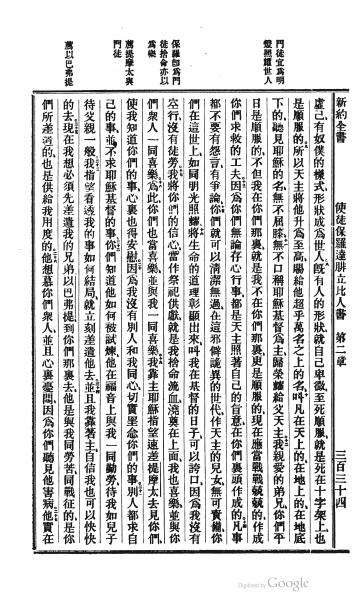 新約全書 使徒保羅達腓立比人書 第二章 三百三十四
虛己有奴僕的樣式形狀成爲世人旣有人的形狀就自己卑微至死順服就是死在十字架上也
是順服的所以天主將他升爲至高賜給他超乎萬名之上的名呌凡在天上的在地上的在地底
下的聽見耶穌的名無不屈膝無不口稱耶穌基督爲主歸榮耀給父天主我親愛的弟兄你們平
日是順服的不但我在你們那裏就是我不在你們那裏更是順服的現在應當戰戰兢兢的作成
你們求救的工夫因爲你們無論存心行事都是天主照著自己的旨意在你們裏頭作成的凡事
都不要有怨言有爭論你們就可以淸潔無過在這邪僻詭異的世代作天主的兒女無可責備你
們在這世上如同明光照耀將生命的道理彰顯出來呌我在基督的日子可以誇口因爲我沒有
空行沒有徒勞我將你們的信心當作祭祀供獻就是我捨命流血澆奠在上面我也喜樂並與你
們衆人一同喜樂爲此你們也當喜樂並與我一同喜樂我靠主耶穌指望速差提摩太去見你們
使我知道你們的事心裏也得安慰因爲我沒有別人和我同心切實罣念你們的事別人都求自
己的事並不求耶穌基督的事你們知道他如何被試煉他在福音上與我一同勤勞待我如兒子
待父親一般我指望看透我的事如何結局就立刻差遣他去並且我靠著主自信我也可以快快
的去現在我想必須先差遣我的兄弟以巴弗提到你們那裏去他是與我同勞苦同戰征的是你
們所差遣的也是供給我用度的他想慕你們衆人並且心裏憂悶因爲你們聽見他害病他實在
門徒宜爲明
燈照耀世人
保羅卽爲門
徒捨命亦以
爲樂
薦提摩太與
門徒
薦以巴弗提
Digitized by Google